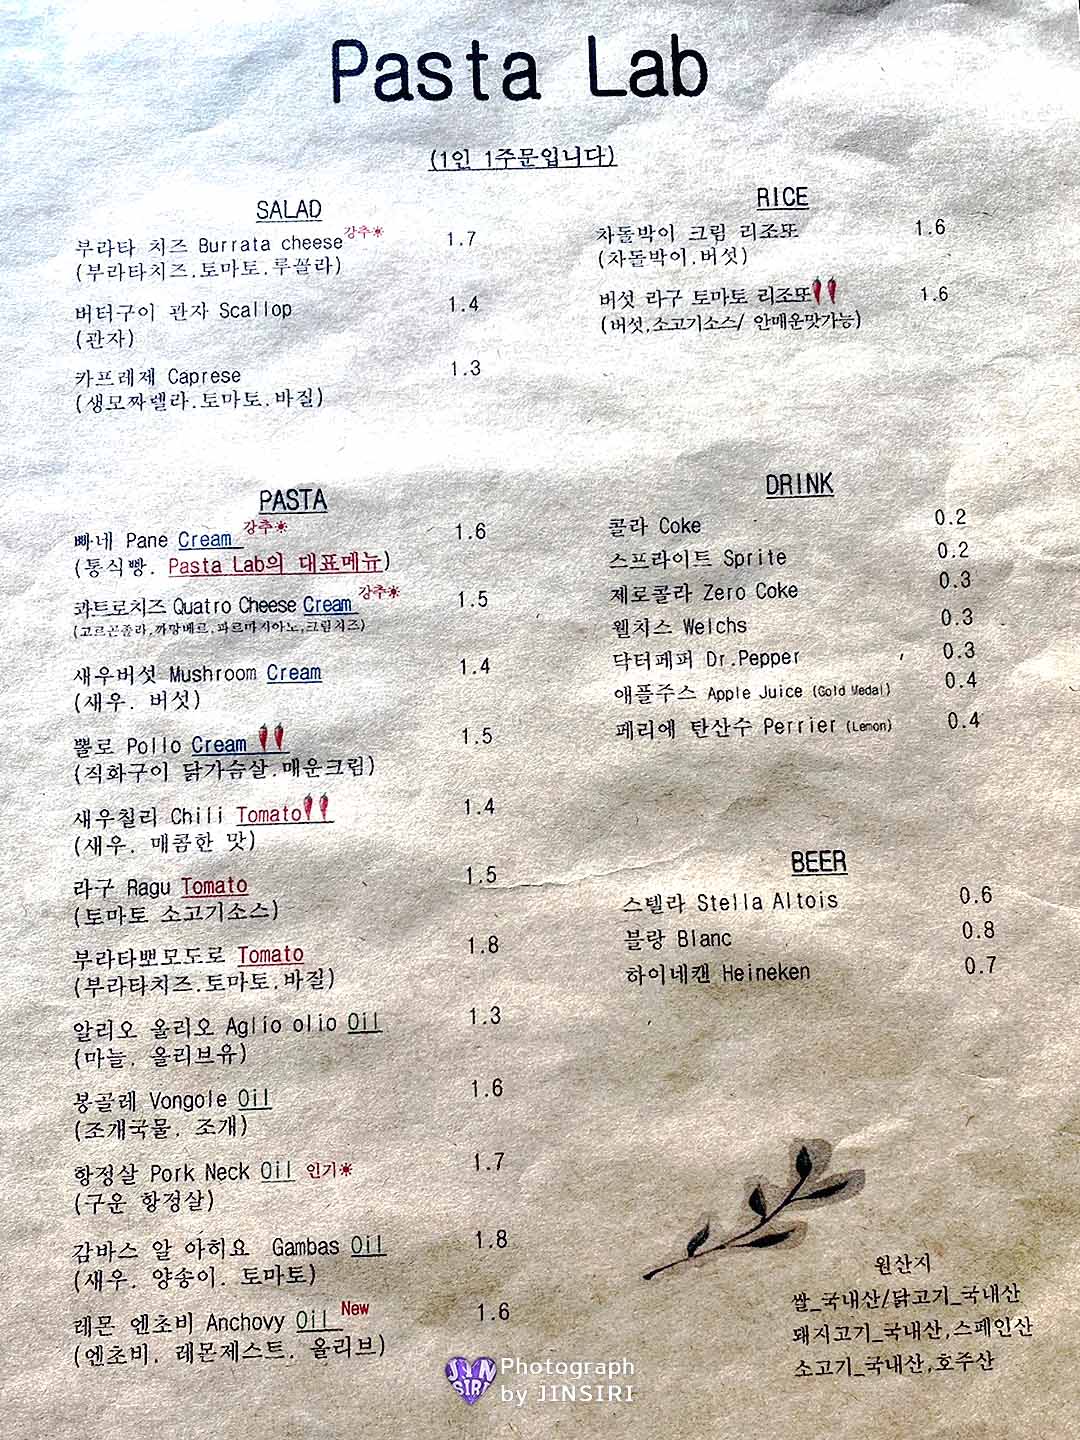 Pasta Lab
(1인 1주문입니다)
SALAD
부라타 치즈 Burrata cheese 강추☀ 1.7
(부라타치즈.토마토.루꼴라)
버터구이 관자 Scallop 1.4
(관자)
카프레제 Caprese 1.3
(생모짜렐라.토마토.바질)
RICE
차돌박이 크림 리조또 1.6
(차돌박이.버섯)
버섯 라구 토마토 리조또🌶🌶 1.6
(버섯,소고기소스/ 안매운맛가능)
PASTA
빠네 Pane Cream 강추☀ 1.6
(통식빵. Pasta Lab의 대표메뉴)
콰트로치즈 Quatro Cheese Cream 강추☀ 1.5
(고르곤졸라,까망베르,파르마지아노,크림치즈)
새우버섯 Mushroom Cream 1.4
(새우. 버섯)
뽈로 Pollo Cream 🌶🌶 1.5
(직화구이 닭가슴살.매운크림)
새우칠리 Chili Tomato🌶🌶 1.4
(새우. 매콤한 맛)
라구 Ragu Tomato 1.5
(토마토 소고기소스)
부라타뽀모도로 Tomato 1.8
(부라타치즈.토마토.바질)
알리오 올리오 Aglio olio Oil 1.3
(마늘. 올리브유)
봉골레 Vongole Oil 1.6
(조개국물. 조개)
항정살 Pork Neck Oil 인기☀ 1.7
(구운 항정살)
감바스 알 아히요 Gambas Oil 1.8
(새우. 양송이. 토마토)
레몬 엔초비 Anchovy Oil New 1.6
(엔초비. 레몬제스트. 올리브)
DRINK
콜라 Coke 0.2
스프라이트 Sprite 0.2
제로콜라 Zero Coke 0.3
웰치스 Welchs 0.3
닥터페퍼 Dr.Pepper 0.3
애플주스 Apple Juice (Gold Medal) 0.4
페리에 탄산수 Perrier (Lemon) 0.4
BEER
스텔라 Stella Altois 0.6
블랑 Blanc 0.8
하이네캔 Heineken 0.7
원산지
쌀_국내산/닭고기_국내산
돼지고기_국내산,스페인산
소고기_국내산,호주산
JIN SIRI
Photograph
by JINSIRI